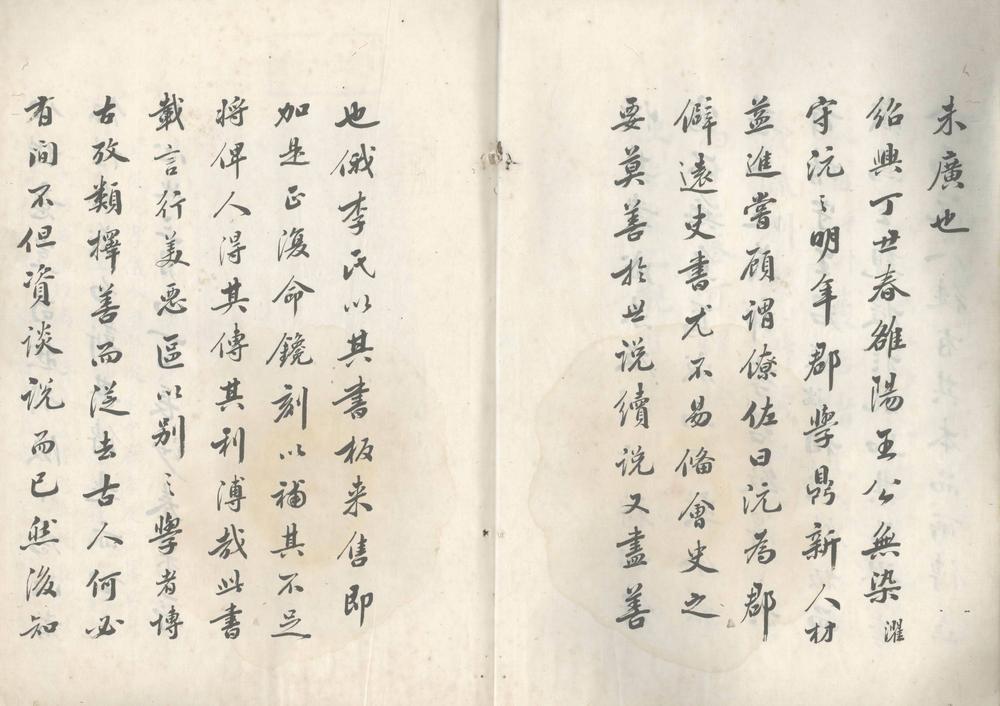 未廣也
紹興丁丑春雒陽王公無染濯
守沅〻明年郡學鼎新人材
益進嘗顧謂僚佐曰沅為郡
僻遠史書尤不易俻會史之
要莫善於世說續說又盡善
也俄李氏以其書板来售即
加是正復命鏡刻以補其不足
將俾人得其傳其利溥哉此書
載言行美惡區以别〻學者博
古攷類擇善而從去古人何必
有间不但資談說而已然後知